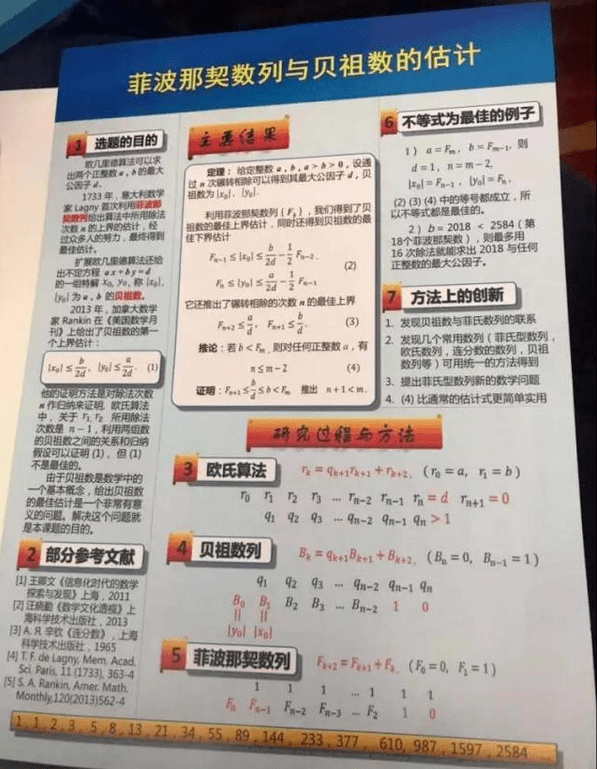 菲波那契数列与贝祖数的估计
1 选题的目的
欧几里德算法可以求
出两个正整数 a , b 的最大
公因子 d .
1733 年，意大利数学
家 Lagny 首次利用菲波那
契数列给出算法中所用除法
次数 n 的上界的估计，经
过众多人的努力，最终得到
最佳估计。
扩展欧几里德算法还给
出不定方程 ax + by = d
的一组特解 x₀, y₀, 称 |x₀|,
|y₀| 为 a , b 的贝祖数。
2013 年，加拿大数学
家 Rankin 在《美国数学月
刊》上给出了贝祖数的第一
个上界估计：
|x₀| ≤ b/2d, |y₀| ≤ a/2d. (1)
他的证明方法是对除法次数
n 作归纳来证明, 欧氏算法
中，关于 r₁, r₂ 所用除法
次数是 n − 1，利用两组数
的贝祖数之间的关系和归纳
假设可以证明 (1)、但 (1)
不是最佳的。
由于贝祖数是数学中的
一个基本概念，给出贝祖数
的最佳估计是一个非常有意
义的问题。解决这个问题就
是本课题的目的。
2 部分参考文献
[1] 王卿文《信息化时代的数学
探索与发现》上海，2011
[2] 汪晓勤《数学文化透视》上
海科学技术出版社，2013
[3] А. Я. 辛钦《连分数》, 上海
科学技术出版社，1965
[4] T. F. de Lagny, Mem. Acad.
Sci. Paris, 11 (1733), 363-4
[5] S. A. Rankin, Amer. Math.
Monthly,120(2013)562-4
主要结果
定理： 给定整数 a , b , a > b > 0 , 设通
过 n 次辗转相除可以得到其最大公因子 d，贝
祖数为 |x₀|, |y₀|.
利用菲波那契数列 {Fₖ}，我们得到了贝
祖数的最佳上界估计，同时还得到贝祖数的最
佳下界估计
Fₙ₋₁ ≤ |x₀| ≤ b/2d − 1/2 Fₙ₋₂.
(2)
Fₙ ≤ |y₀| ≤ a/2d − 1/2 Fₙ₋₁
它还推出了辗转相除的次数 n 的最佳上界
Fₙ₊₂ ≤ a/d, Fₙ₊₁ ≤ b/d. (3)
推论：若 b < Fₘ , 则对任何正整数 a，有
n ≤ m − 2 (4)
证明：Fₙ₊₁ ≤ b/d ≤ b < Fₘ 推出 n + 1 < m.
6 不等式为最佳的例子
1） a = Fₘ, b = Fₘ₋₁, 则
d = 1, n = m − 2,
|x₀| = Fₙ₋₁, |y₀| = Fₙ,
(2) (3) (4) 中的等号都成立，所
以不等式都是最佳的。
2） b = 2018 < 2584（第
18个菲波那契数），则最多用
16 次除法就能求出 2018 与任何
正整数的最大公因子。
7 方法上的创新
1. 发现贝祖数与菲氏数列的联系
2. 发现几个常用数列（菲氏型数列，
欧氏数列，连分数的数列，贝祖
数列等）可用统一的方法得到
3. 提出菲氏型数列新的数学问题
4. (4) 比通常的估计式更简单实用
研究过程与方法
3 欧氏算法 rₖ = qₖ₊₁rₖ₊₁ + rₖ₊₂, (r₀ = a, r₁ = b)
r₀ r₁ r₂ r₃ ... rₙ₋₂ rₙ₋₁ rₙ = d rₙ₊₁ = 0
q₁ q₂ q₃ ... qₙ₋₂ qₙ₋₁ qₙ > 1
4 贝祖数列 Bₖ = qₖ₊₁Bₖ₊₁ + Bₖ₊₂, (Bₙ = 0, Bₙ₋₁ = 1)
q₁ q₂ q₃ ... qₙ₋₂ qₙ₋₁ qₙ
B₀ B₁ B₂ B₃ ... Bₙ₋₂ 1 0
|| ||
|y₀| |x₀|
5 菲波那契数列 Fₖ₊₂ = Fₖ₊₁ + Fₖ, (F₀ = 0, F₁ = 1)
1 1 1 ... 1 1 1
Fₙ Fₙ₋₁ Fₙ₋₂ Fₙ₋₃ ... F₂ 1 0
1 , 1 , 2 , 3 , 5 , 8 , 13 , 21 , 34 , 55 , 89 , 144 , 233 , 377 , 610, 987 , 1597 , 2584 ...